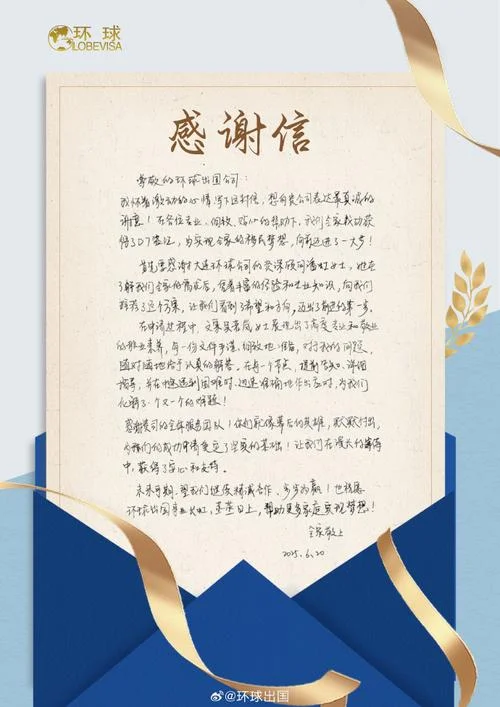 环球
GLOBEVISA
感谢信
尊敬的环球出国公司：
我怀着激动的心情写下这封信，想向贵公司表达最真诚的
谢意！在各位专业、高效、贴心的帮助下，我们全家成功获
得了D7签证，为实现全家的移民梦想，向前迈进了一大步！
首先要感谢大连环球公司的资深顾问潘虹女士，她在
了解我们全家的需求后，凭着丰富的经验和专业知识，向我们
推荐了这个方案，让我们看到了希望和方向，迈出了前进的第一步。
在申请过程中，文案吴蔷薇女士展现出了高度专业和敬业
的职业素养，每一份文件手续，高效地准备，对于我的问题，
随时随地给予认真的解答，在每一个节点，提前告知、详细
指导，并在中途遇到困难时，迅速准确地作出应对，为我们
化解了一个又一个的难题！
感谢贵司的全体服务团队！你们就像幕后的英雄，默默付出，
为我们的成功申请奠定了坚实的基础！让我们在漫长的等待
中，获得了安心和支持。
未来可期，望我们继续精诚合作、步步为赢！也祝愿
环球出国事业长虹，蒸蒸日上，帮助更多家庭实现梦想！
全家敬上
2025.6.20
@环球出国